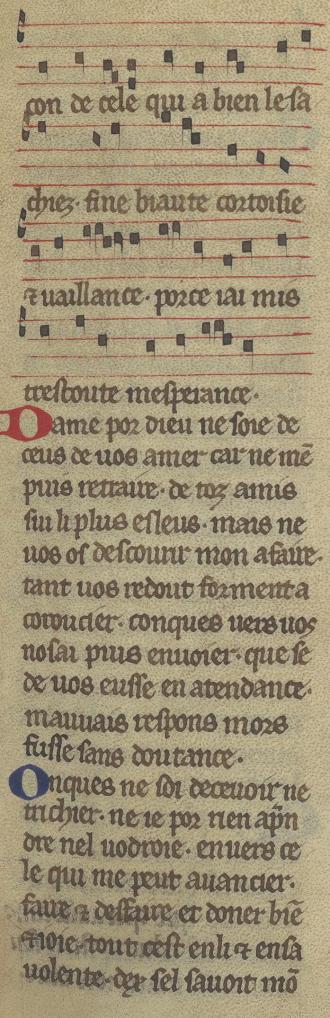 con de cele qui a bien le sa
chiez. fine biaute cortoisie
⁊ uaillance. por ce i ai mis
trestoute mesperance.
Dame por dieu ne soie de
ceus de uos amer car ne mē
puis retraire. de toz amis
sui li plus esleus. mais ne
uos os descourir mon afaire.
tant uos redout forment a
coroucier. conques uers uos
nosai puis enuoier. que se
de uos eusse en atendance.
mauuais respons mors
fusse sans doutance.
Onques ne soi deceuoir ne
trichier. ne ie por rien apn̄
dre nel uodroie. enuers ce
le qui me peut auancier.
faire ⁊ desfaire et doner biē
⁊ ioie. tout cest en li ⁊ en sa
uolente. dex sel sauoit mō